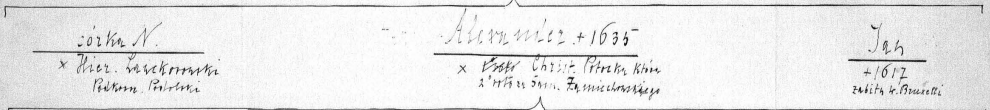 córka N.
× Hier. Lanckoronski
Podkom. Podolski
Alexander + 1635
× Christ. Potocka która
2° voto za Sam. Zamiechowskiego
Jan
+ 1617
zabity w